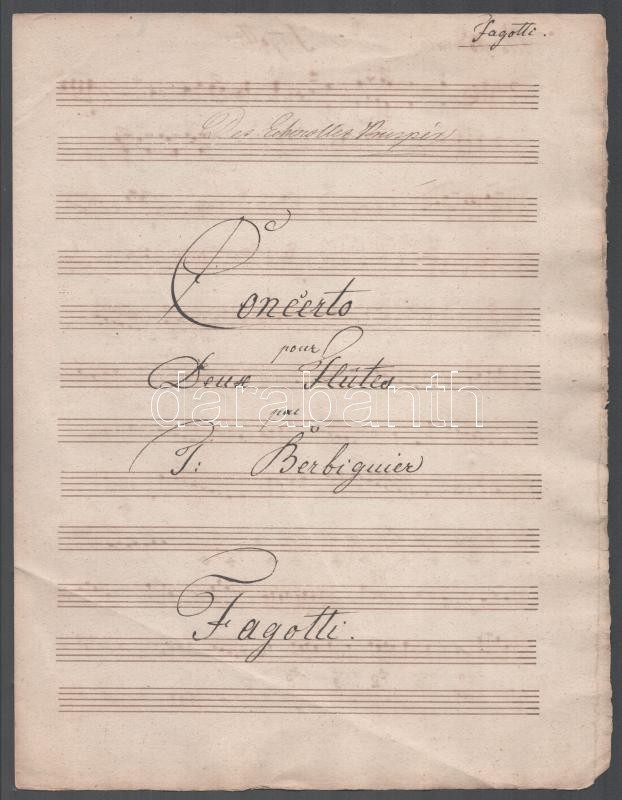 Fagotti.
Des
Concerto
pour
Deux Flûtes
par
darabanth
T: Berbiguier
Fagotti.